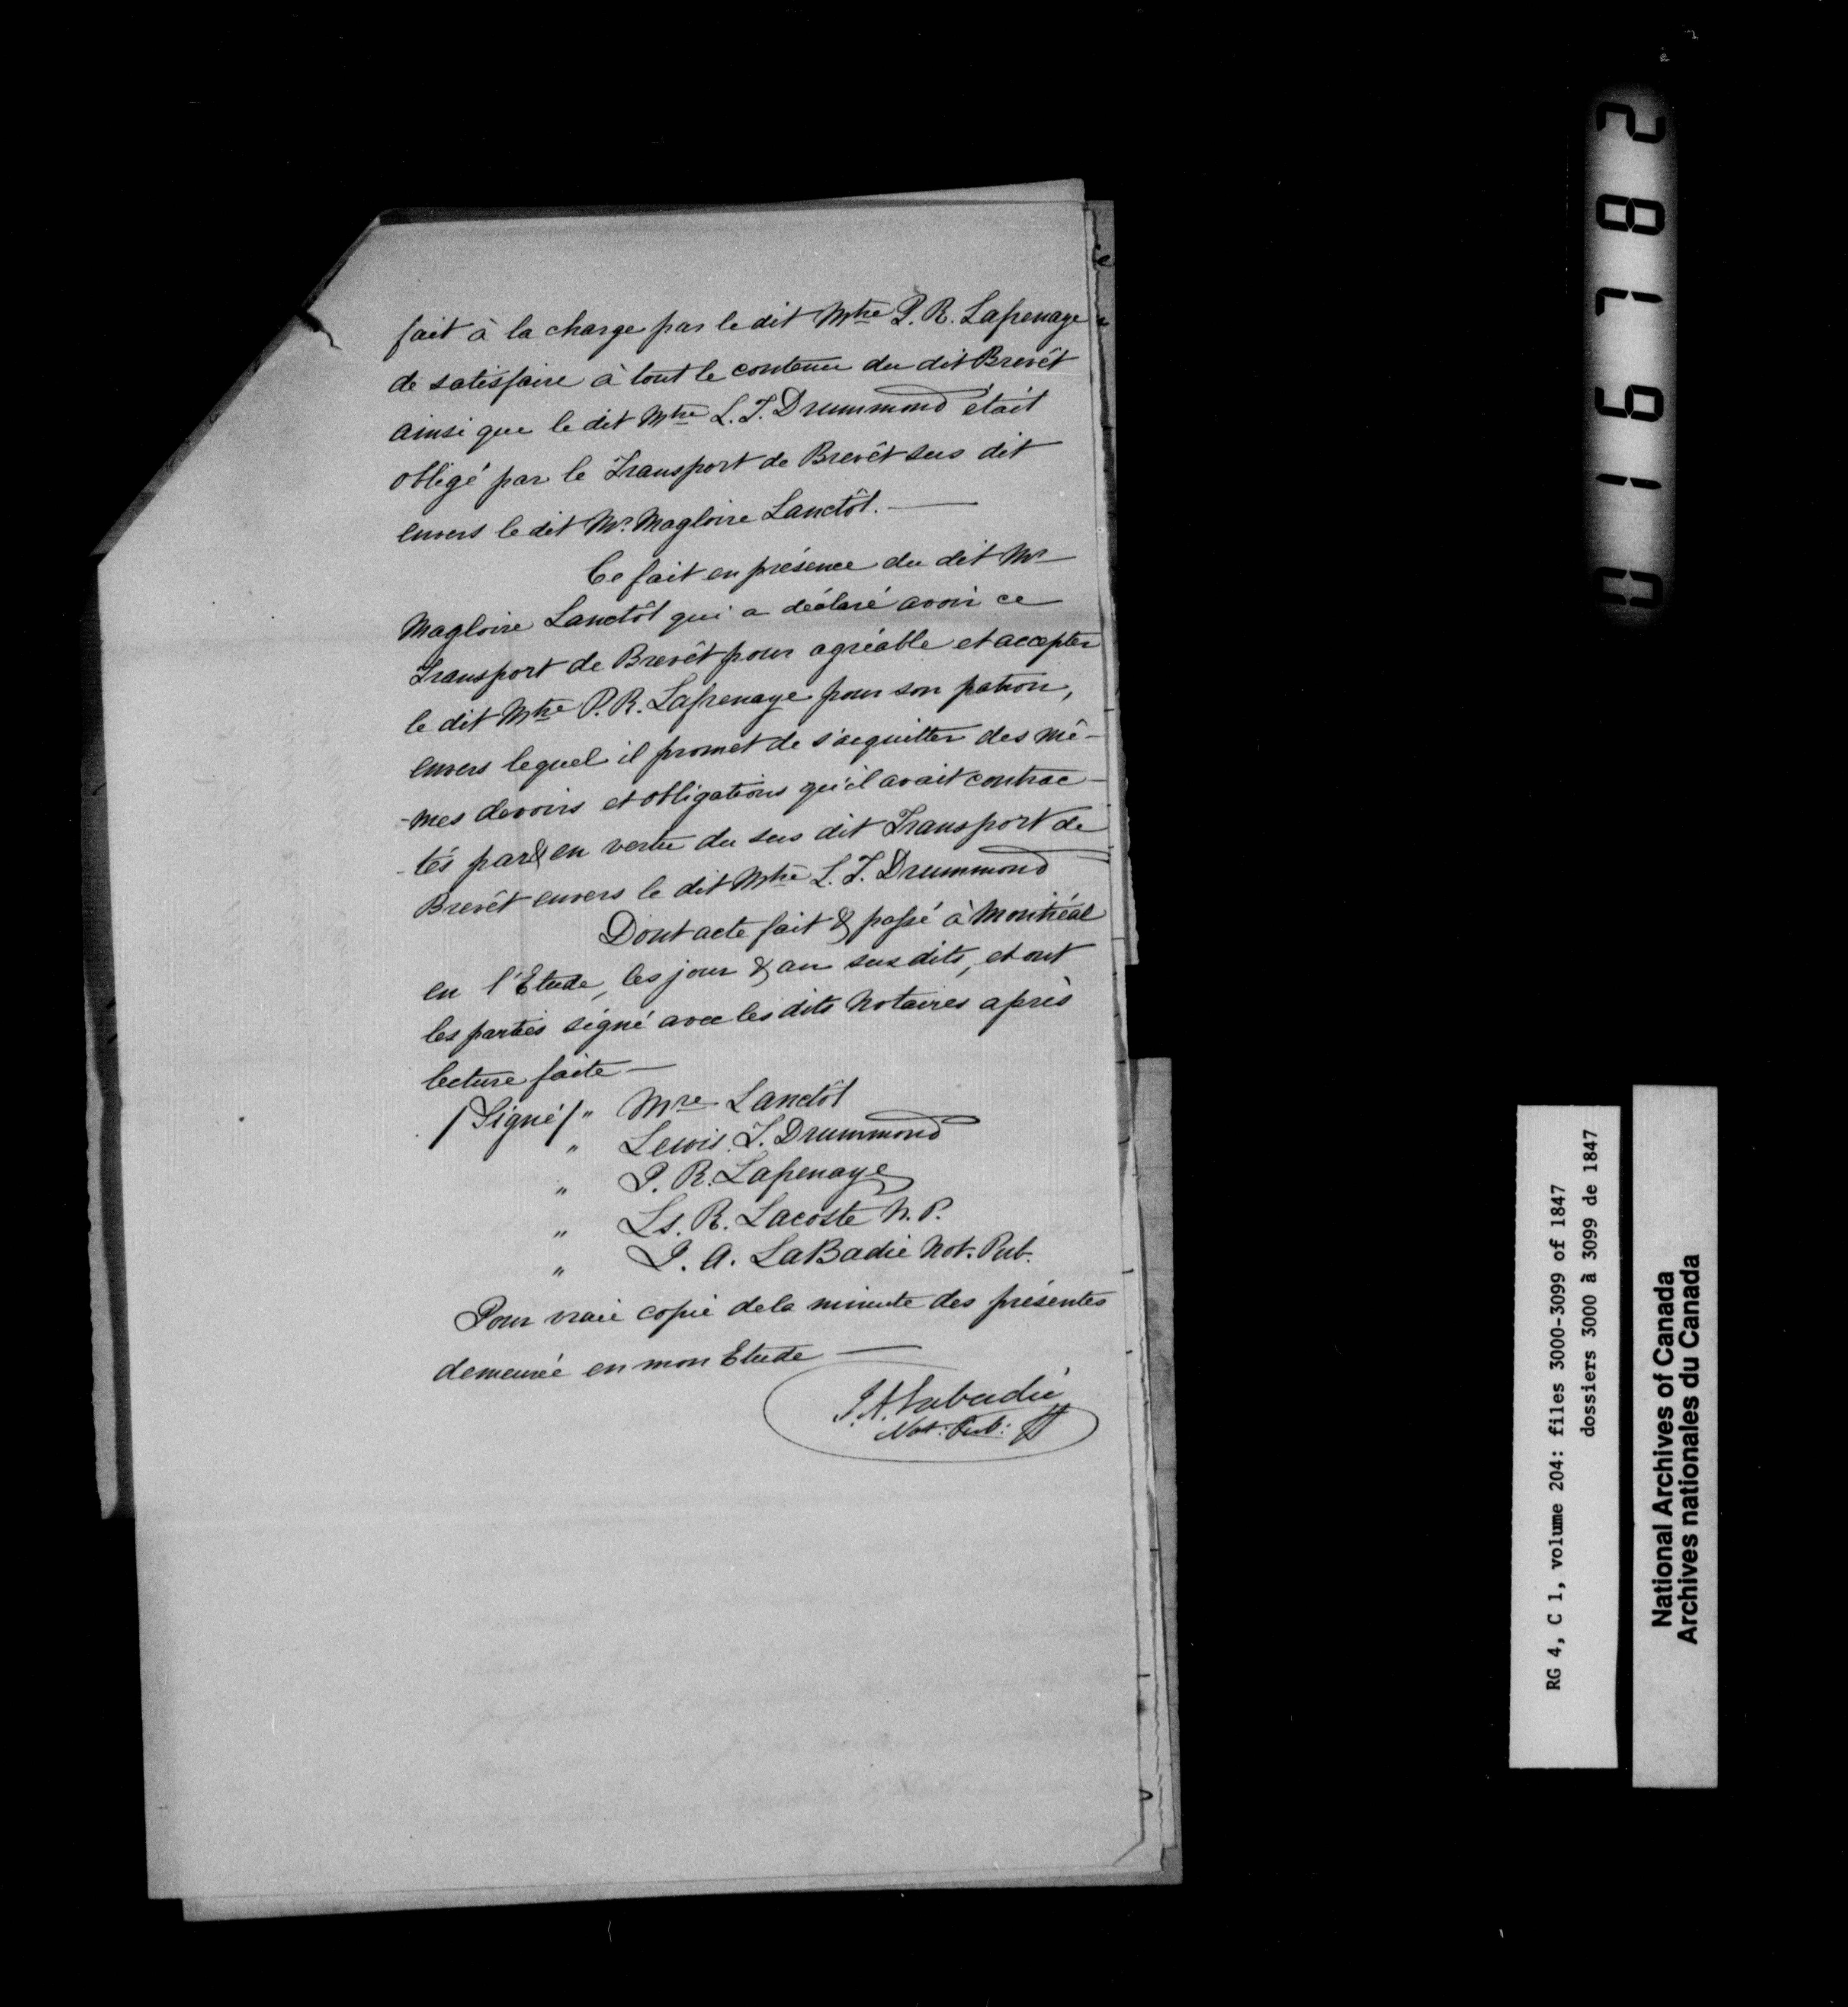 fait à la charge par le dit Mtre P. R. Lafrenaye
de satisfaire à tout le contenu du dit Brevêt
ainsi que le dit Mtre L. T. Drummond était
obligé par le Transport de Brevêt sus dit
envers le dit Mr. Magloire Lanctôt. —
Ce fait en présence du dit Mr
Magloire Lanctôt qui a déclaré avoir ce
Transport de Brevêt pour agréable et accepter
le dit Mtre P. R. Lafrenaye pour son patron,
envers lequel il promet de s'acquitter des mê-
-mes devoirs et obligations qu'il avait contrac-
-tés par & en vertu du sus dit Transport de
Brevêt envers le dit Mtre L. T. Drummond
Dont acte fait & passé à Montréal
en l'Etude, les jour & an susdits, et ont
les parties signé avec les dits Notaires après
lecture faite —
/Signé/ " Mre Lanctôt
" Lewis T. Drummond
" P. R. Lafrenaye
" Ls. R. Lacoste N. P.
" J. A. LaBadie Not. Pub.
Pour vraie copie de la minute des présentes
demeurée en mon Etude —
J. A. Labadie
Not: Pub:
016782
RG 4, C 1, volume 204: files 3000-3099 of 1847
dossiers 3000 à 3099 de 1847
National Archives of Canada
Archives nationales du Canada